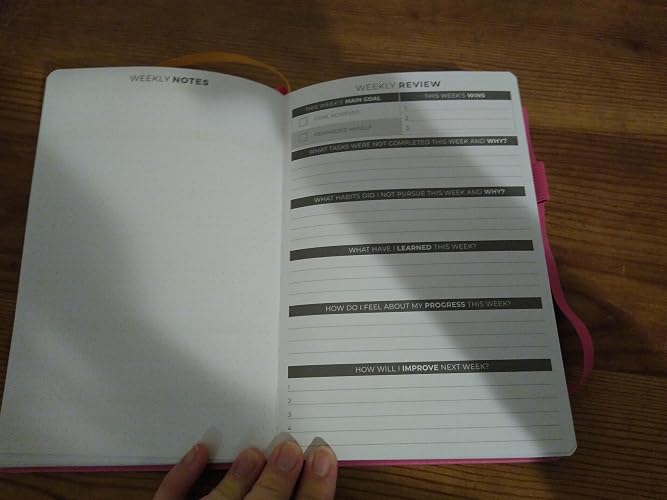 WEEKLY NOTES
WEEKLY REVIEW
THIS WEEK'S MAIN GOAL
THIS WEEK'S WINS
GOAL ACHIEVED
REWARDED MYSELF
2
3
WHAT TASKS WERE NOT COMPLETED THIS WEEK AND WHY?
WHAT HABITS DID I NOT PURSUE THIS WEEK AND WHY?
WHAT HAVE I LEARNED THIS WEEK?
HOW DO I FEEL ABOUT MY PROGRESS THIS WEEK?
HOW WILL I IMPROVE NEXT WEEK?
1
2
3
4